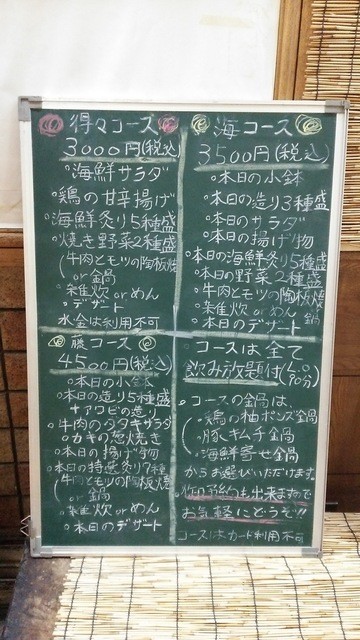 得々コース
3000円(税込)
・海鮮サラダ
・鶏の甘辛揚げ
・海鮮炙り5種盛
・焼き野菜2種盛
(牛肉とモツの陶板焼
or 鍋
・雑炊 or めん
・デザート
水金は利用不可
海コース
3500円(税込)
・本日の小鉢
・本日の造り3種盛
・本日のサラダ
・本日の揚げ物
・本日の海鮮炙り5種盛
・本日の野菜2種盛
・牛肉とモツの陶板焼
鍋
・雑炊 or めん
・本日のデザート
藤コース
4500円(税込)
・本日の小鉢
・本日の造り5種盛
+アワビの造り
・牛肉のタタキサラダ
・カキの
焼き
・本日の揚げ物
・本日の特選炙り7種
(牛肉とモツの陶板焼
or 鍋
・雑炊 or めん
・本日のデザート
コースは全て
飲み放題付(L.O.
90分)
・コースの鍋は、
・鶏の柚ポンズ鍋
・豚キムチ鍋
・海鮮寄せ鍋
からお選びいただけます。
の予約も出来ますので
お気軽にどうぞ!!
コースはカード利用不可